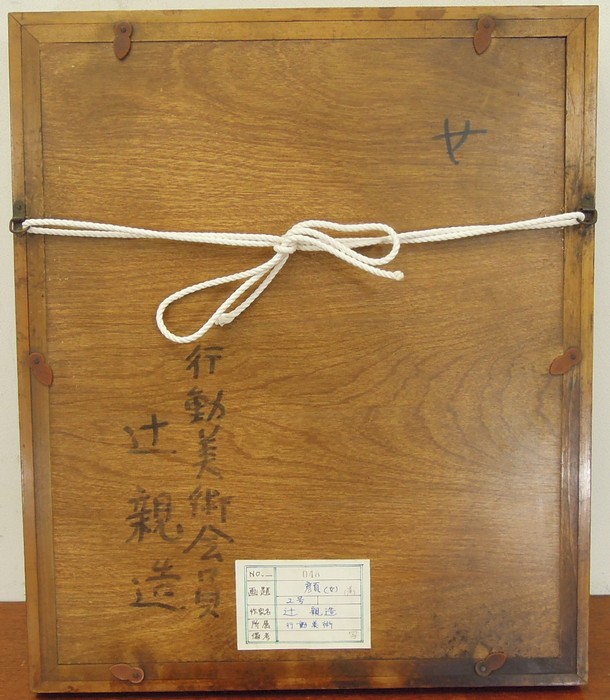 サ
行動美術会員
辻親造
NO. 040
画題 顔(女)
2号
作家名 辻親造
所属 行動美術
備考